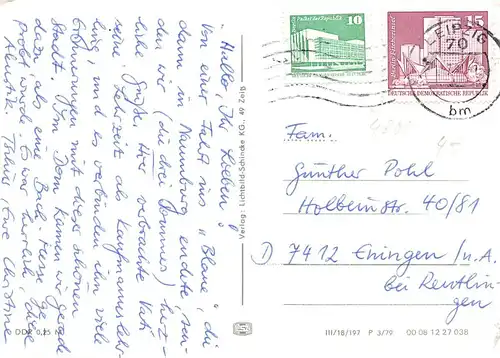 "Hallo, Ihr Lieben!"
Von einer Fahrt ins "Blaue", die
dann in Naumburg endete, sen-
den wir (die drei Pommers) herz-
liche Grüße. Hier verbrachte Vati
seine Lehrzeit als Kaufmannslehr-
ling, und es verbinden ihn viele
Erinnerungen mit dieser schönen
Stadt. Im Dom kamen wir gerade
dazu als eine Bach-Messe ge-
probt wurde. Es war herrlich, diese
Akustik! Tschüs, Eure Christine
DDR 0,25 M
Verlag: Lichtbild-Schincke KG., 49 Zeitz
10
Palast der Republik
DDR
15
DEUTSCHE DEMOKRATISCHE REPUBLIK
LEIPZIG
70
bm
Fam.
Günther Pohl
Holbeinstr. 40/81
D 7412 Eningen/u.A.
bei Reutlin-
gen
III/18/197 P 3/79 00 08 12 27 038